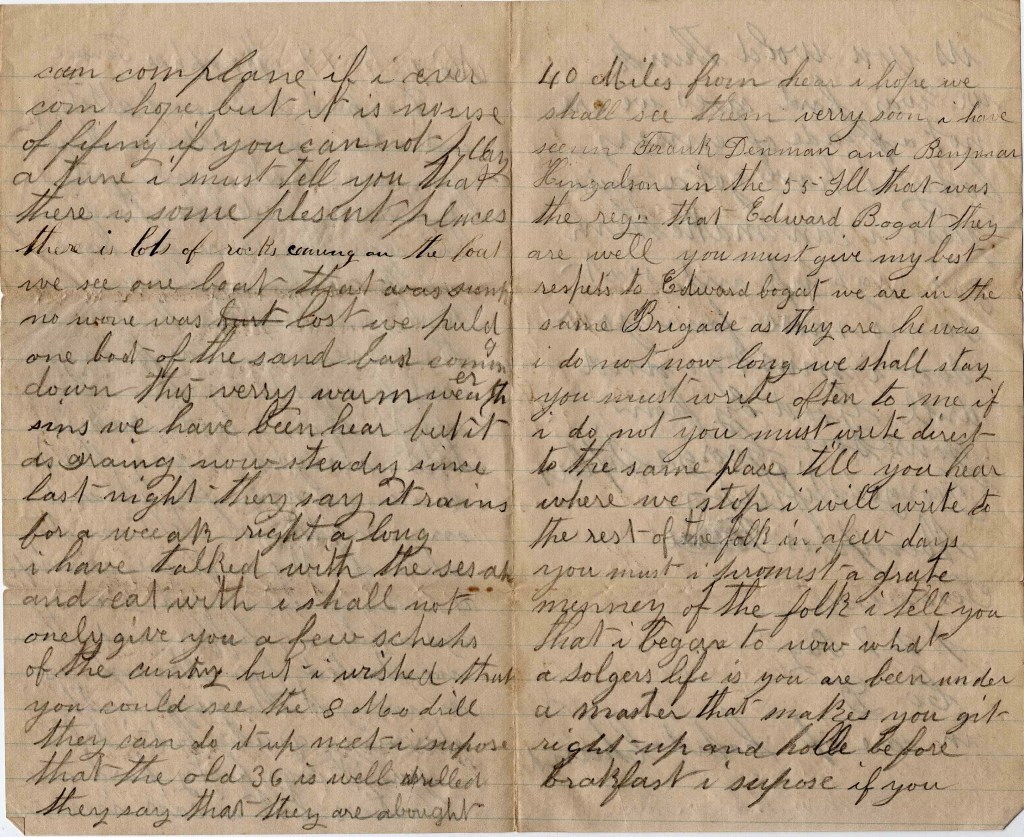 can complane if i ever
com hope but it is nouse
of fifing if you can not play
a tune i must tell you that
there is some plesent places
there is lots of rocks coming on the boat
we see one boat that was sunk
no wone was hurt lost we puld
one boat of the sand bar coming
down this verry warm weather
sins we have been hear but it
is raing now steady since
last night they say it rains
for a weeak right a long
i have talked with the sesah
and eat with i shall not
onely give you a few scheshs
of the cuntry but i wished that
you could see the 8 Mo drill
they can do it up neet i supose
that the old 36 is well drilled
they say that they are abought
40 Miles from hear i hope we
shall see them verry soon i have
seeun Denman and Benjman
Hingalson in the 55 Ill that was
the regt that Edward Bogat they
are well you must give my best
respets to Edward bogat we are in the
same Brigade as they are he was
i do not now long we shall stay
you must write often to me if
i do not you must write direct
to the same place till you hear
where we stop i will write to
the rest of the folk in a few days
you must i promist a grate
menney of the folk i tell you
that i began to now what
a solgers life is you are been under
a master that makes you git
right up and holle before
brakfast i supose if you